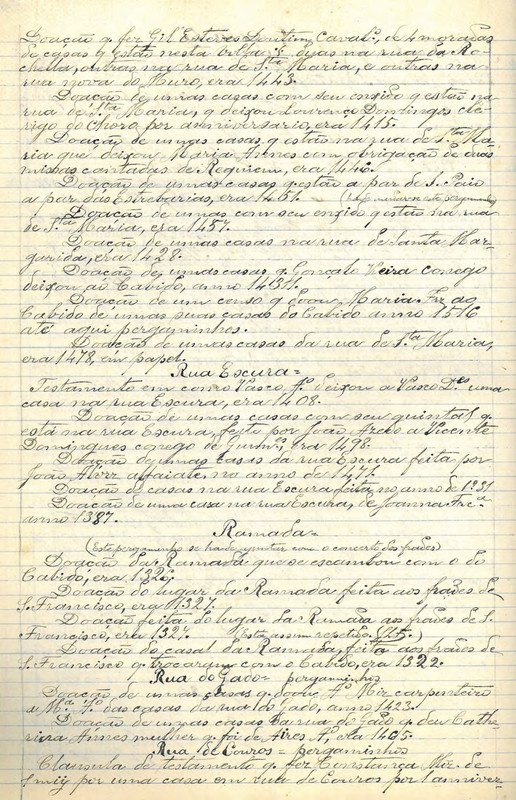 Doação q fez Gil Esteves Caval.º de 4 moradas
de casas q estão nesta villa, duas na rua da Ro-
chella, outras na rua de S.ta Maria, e outras na
rua nova do Muro, era 1443.
Doação de umas casas com seu enxido q estão na
rua de S.ta Maria, q deixou Lourenço Domingos cle-
rigo do choro por anniversario, era 1415.
Doação de umas casas q estão na rua de S.ta Ma-
ria que deixou Maria Annes com obrigação de duas
missas cantadas de Requiem, era 1446.
Doação de umas casas q estão a par de S. Paio
a par das Estrebarias, era 1451. = pergaminho)
Doação de umas com seu enxido q estão na rua
de S.ta Maria, era 1457.
Doação de umas casas na rua de Santa Mar-
garida, era 1428.
Doação de umas casas q. Gonçalo Vieira conego
deixou ao Cabido, anno 1431.
Doação de um censo q doou Maria Frz ao
Cabido de umas suas casas do Cabido anno 1516
até aqui pergaminhos.
Doação de umas casas da rua de S.ta Maria,
era 1478, em papel.
Rua Escura=
Testamento em como Vasco A.º deixou a Vasco D.es uma
casa na rua Escura, era 1408.
Doação de umas casas com seu quintal q.
está na rua Escura, feita por João a Vicente
Domingues conego de Guim.es era 1492.
Doação de umas casas da rua Escura feita por
João Alvrz alfaiate no anno de 1471.
Doação de casas na rua Escura feita no anno de 1931
Doação de uma casa na rua Escura, de Joanna Fr.ca
anno 1387.
Ramada=
(Este pergaminho se hade ajuntar com o concerto dos frades)
Doação da Ramada que se escambou com o do
Cabido, era 1326.
Doação do lugar da Ramada feita aos frades de
S. Francisco, era 1327.
Doação feita do lugar da Ramada aos frades de S.
Francisco, era 1327. (Está assim repetido.) (25.)
Doação do casal da Ramada, feita aos frades de
S. Francisco q trocaram com o Cabido, era 1322.
Rua do Gado= pergaminhos
Doação de umas casas q. doou A.º Miz carpinteiro
e M.ª A.º das casas da rua do Gado, anno 1423.
Doação de umas casas da rua do Gado q. deu Cathe-
rina Annes mulher q. foi de Aires A.º, era 1465.
Rua de Couros= pergaminhos
Clausula de testamento q. fez Constança Miz. de
por uma casa em rua de Couros por 1 anniver-